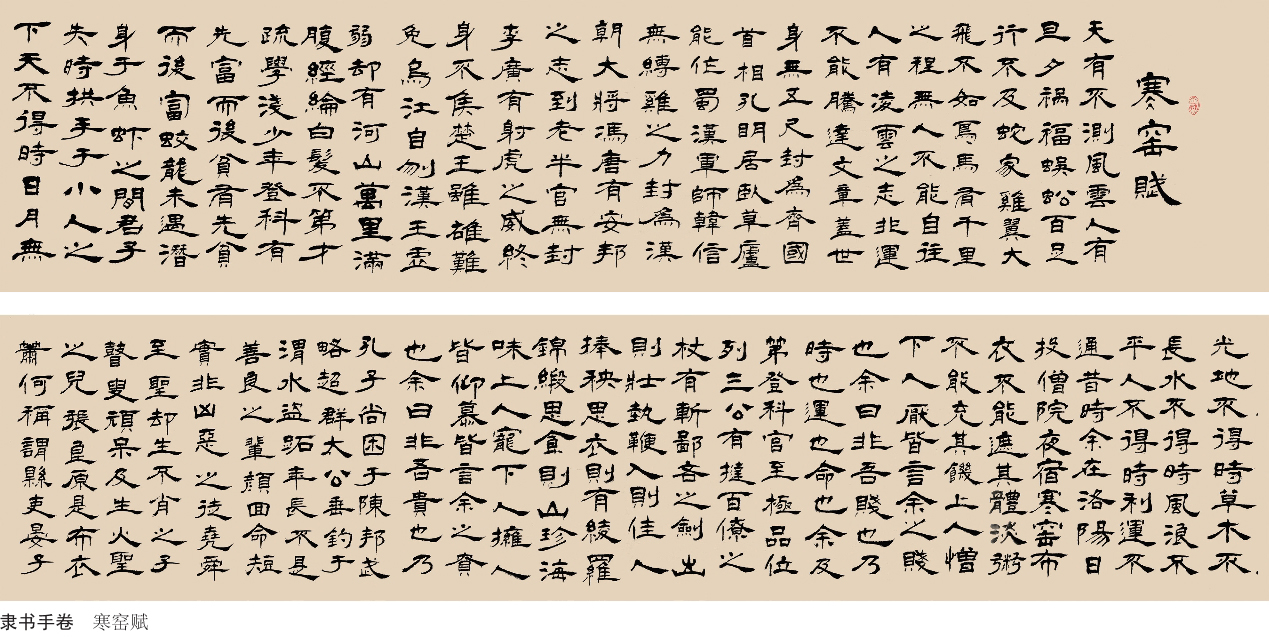 寒窑賦
天有不測風雲人有
旦夕禍福蜈蚣百足
行不及蛇家雞翼大
飛不如鳥馬有千里
之程無人不能自往
人有凌雲之志非運
不能騰達文章蓋世
身無五尺封為齊國
首相孔明居臥草廬
能作蜀漢軍師韓信
無縛雞之力封為漢
朝大將馮唐有安邦
之志到老半官無封
李廣有射虎之威終
身不侯楚王雖雄難
免烏江自刎漢王虽
弱却有河山萬里滿
腹經綸白髮不第才
疏學淺少年登科有
先富而後貧有先貧
而後富蛟龍未遇潛
身于魚虾之間君子
失時拱手于小人之
下天不得時日月無
光地不得時草木不
長水不得時風浪不
平人不得時利運不
通昔時余在洛陽日
投僧院夜宿寒窑布
衣不能遮其體淡粥
不能充其饑上人憎
下人厭皆言余之賤
也余曰非吾賤也乃
時也運也命也余及
第登科官至極品位
列三公有撻百僚之
杖有斬鄙吝之劍出
則壯執鞭入則佳人
捧秧思衣則有綾羅
錦緞思食則山珍海
味上人寵下人擁人
皆仰慕皆言余之貴
也余曰非吾貴也乃
孔子尚困于陳邦武
略超群太公垂釣于
渭水盜跖年長不是
善良之輩顏回命短
實非凶惡之徒堯舜
至聖却生不肖之子
瞽叟頑呆反生大聖
之兒張良原是布衣
蕭何稱謂縣吏晏子
隶书手卷 寒窑赋